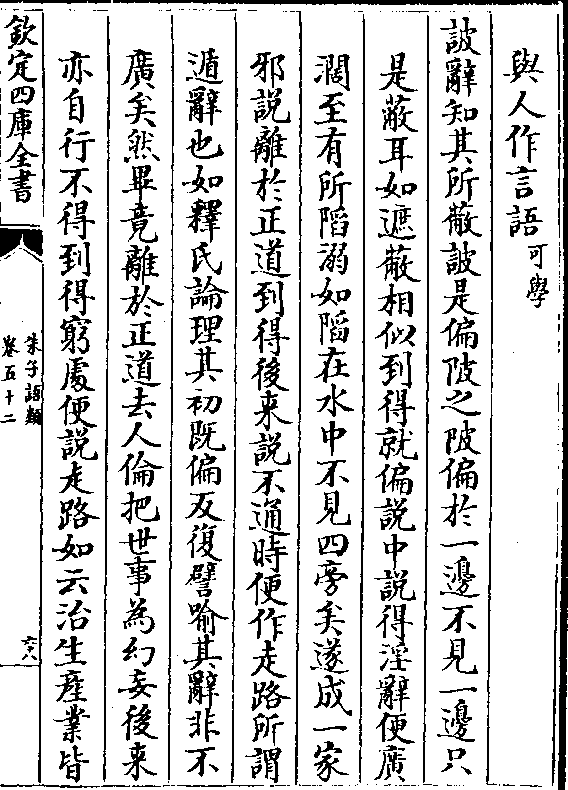 與人作言語可學
詖辭知其所蔽詖是偏陂之陂偏於一邊不見一邊只
是蔽耳如遮蔽相似到得就偏說中說得淫辭便廣
濶至有所䧟溺如䧟在水中不見四旁矣遂成一家
邪說離於正道到得後来說不通時便作走路所謂
遁辭也如釋氏論理其初既偏反復譬喻其辭非不
廣矣然畢竟離於正道去人倫把世事為幻妄後来
亦自行不得到得窮處便說走路如云治生產業皆
欽定四庫全書
朱子語類
卷五十二
六八